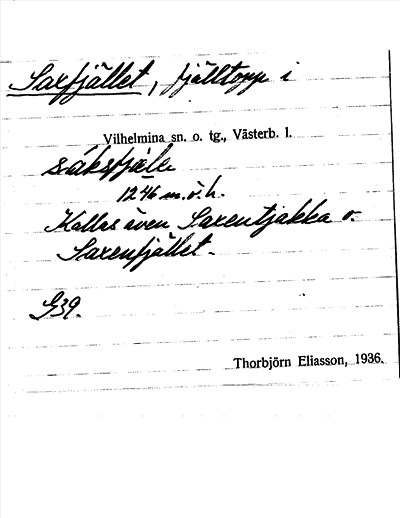 Saxfjället, fjälltopp i
Vilhelmina sn. o. tg., Västerb. l.
sáksfjäle
1246 m.ö.h.
Kallas även Saxentjakka o.
Saxenfjället.
G39.
Thorbjörn Eliasson, 1936.